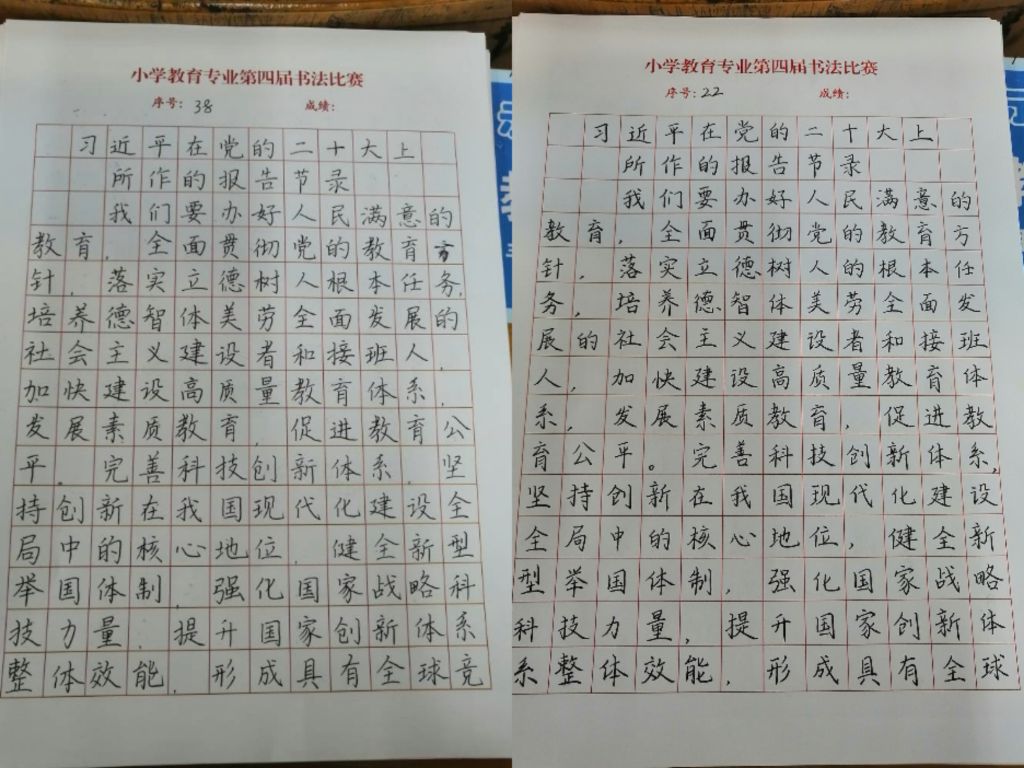 小学教育专业第四届书法比赛
序号：38 成绩：
习近平在党的二十大上
所作的报告节录
我们要办好人民满意的
教育，全面贯彻党的教育方
针，落实立德树人根本任务，
培养德智体美劳全面发展的
社会主义建设者和接班人，
加快建设高质量教育体系，
发展素质教育，促进教育公
平。完善科技创新体系，坚
持创新在我国现代化建设全
局中的核心地位，健全新型
举国体制，强化国家战略科
技力量，提升国家创新体系
整体效能，形成具有全球竞
小学教育专业第四届书法比赛
序号：22 成绩：
习近平在党的二十大上
所作的报告节录
我们要办好人民满意的
教育，全面贯彻党的教育方
针，落实立德树人的根本任
务，培养德智体美劳全面发
展的社会主义建设者和接班
人，加快建设高质量教育体
系，发展素质教育，促进教
育公平。完善科技创新体系，
坚持创新在我国现代化建设
全局中的核心地位，健全新
型举国体制，强化国家战略
科技力量，提升国家创新体
系整体效能，形成具有全球